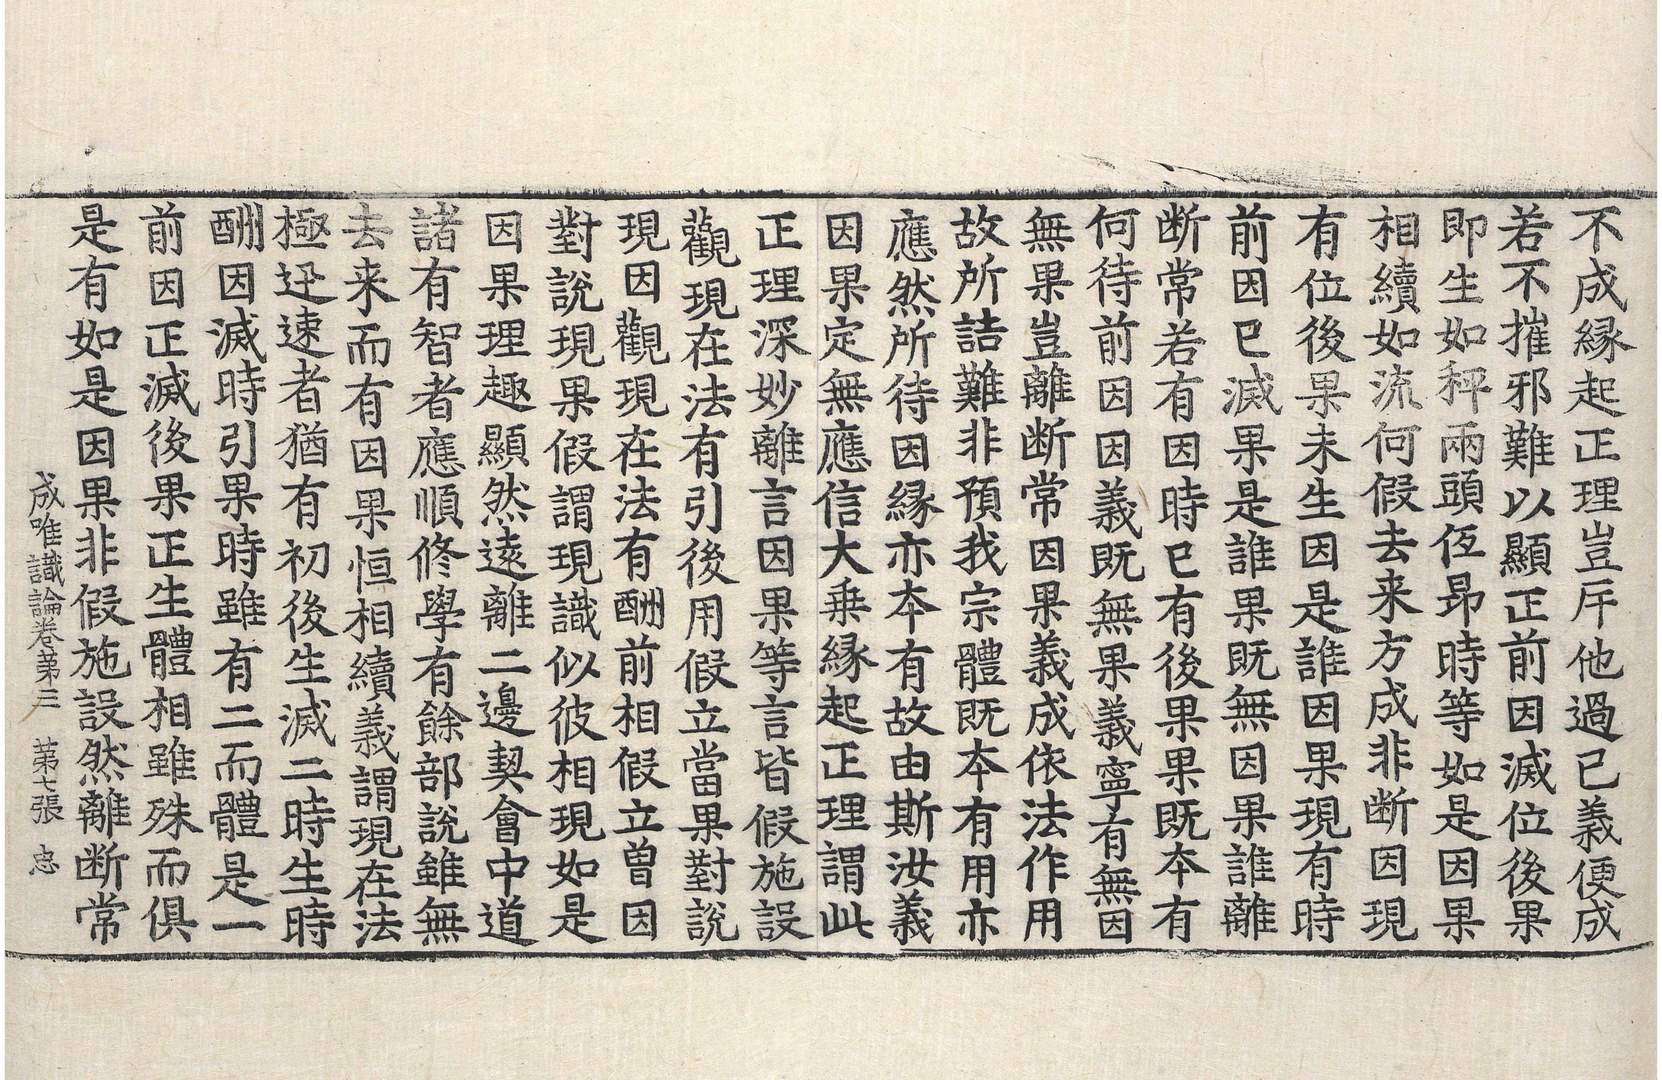 不成縁起正理豈斥他過已義便成
若不摧邪難以顯正前因滅位後果
即生如秤兩頭伍昂時等如是因果
相續如流何假去来方成非断因現
有位後果未生因是誰因果現有時
前因已滅果是誰果既無因果誰離
断常若有因時已有後果果既本有
何待前因因義既無果義寧有無因
無果豈離断常因果義成依法作用
故所詰難非預我宗體既本有用亦
應然所待因縁亦本有故由斯汝義
因果定無應信大乗縁起正理謂此
正理深妙離言因果等言皆假施設
觀現在法有引後用假立當果對說
現因觀現在法有酬前相假立曽因
對說現果假謂現識似彼相現如是
因果理趣顯然遠離二邊契會中道
諸有智者應順修學有餘部說雖無
去来而有因果恒相續義謂現在法
極迅速者猶有初後生滅二時生時
酬因滅時引果時雖有二而體是一
前因正滅後果正生體相雖殊而俱
是有如是因果非假施設然離断常
成唯識論巻第三 第七張 忠